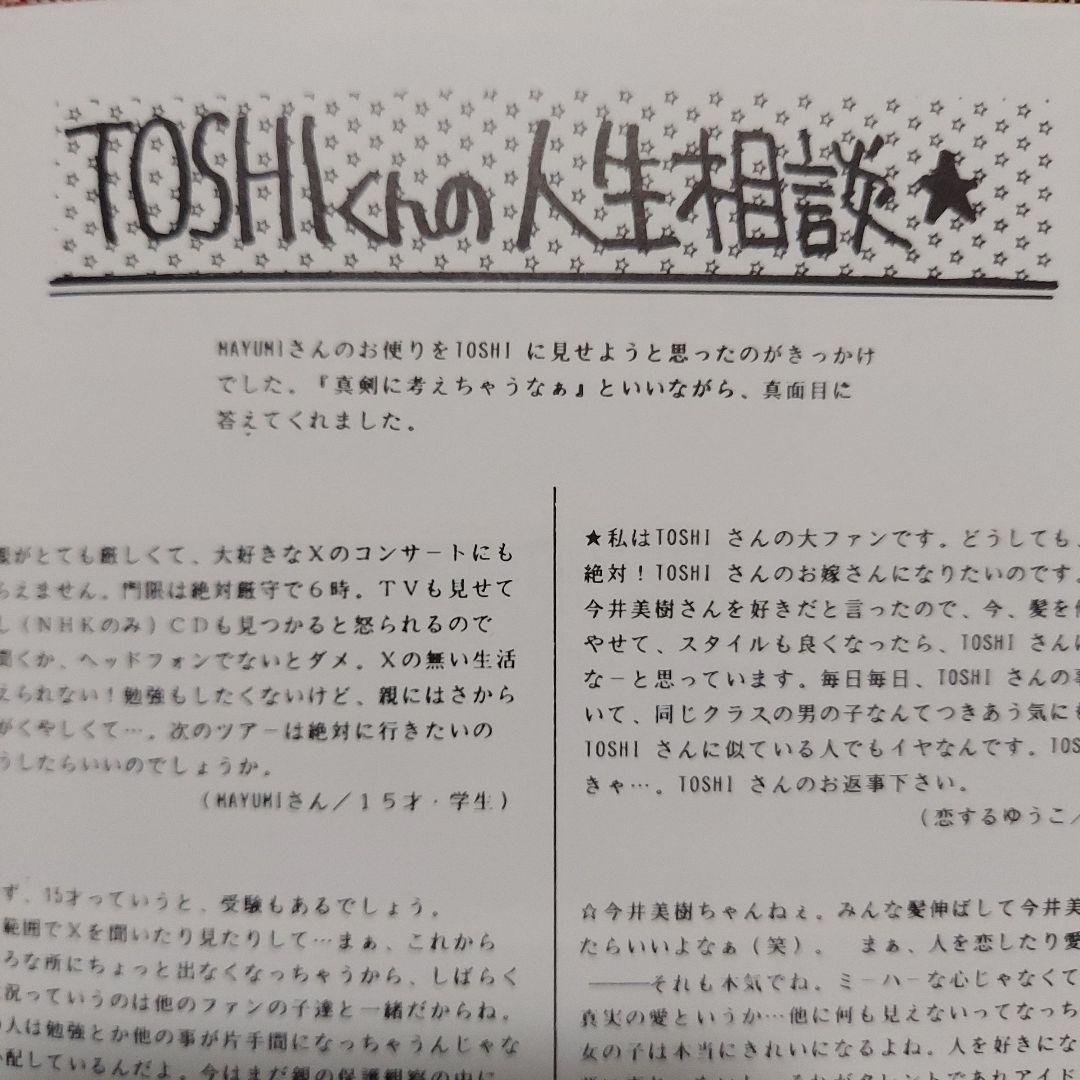 TOSHIくんの人生相談★
MAYUMIさんのお便りをTOSHI に見せようと思ったのがきっかけ
でした。『真剣に考えちゃうなぁ』といいながら、真面目に
答えてくれました。
がとても厳しくて、大好きなXのコンサートにも
らえません。門限は絶対厳守で6時。TVも見せて
し(NHKのみ)CDも見つかると怒られるので
聞くか、ヘッドフォンでないとダメ。Xの無い生活
えられない!勉強もしたくないけど、親にはさから
がくやしくて…。次のツアーは絶対に行きたいの
うしたらいいのでしょうか。
(MAYUMIさん/15才・学生)
ず、15才っていうと、受験もあるでしょう。
範囲でXを聞いたり見たりして…まぁ、これから
ろな所にちょっと出なくなっちゃうから、しばらく
況っていうのは他のファンの子達と一緒だからね。
人は勉強とか他の事が片手間になっちゃうんじゃな
配しているんだよ。今はまだ親の保護観察の中に
★私はTOSHI さんの大ファンです。どうしても、
絶対!TOSHI さんのお嫁さんになりたいのです。
今井美樹さんを好きだと言ったので、今、髪を伸
やせて、スタイルも良くなったら、TOSHI さんに
なーと思っています。毎日毎日、TOSHI さんの事
いて、同じクラスの男の子なんてつきあう気にも
TOSHI さんに似ている人でもイヤなんです。TOS
きゃ…。TOSHI さんのお返事下さい。
(恋するゆうこ/
☆今井美樹ちゃんねぇ。みんな髪伸ばして今井美
たらいいよなぁ(笑)。 まぁ、人を恋したり愛
――それも本気でね。ミーハーな心じゃなくて
真実の愛というか…他に何も見えないってなっち
女の子は本当にきれいになるよね。人を好きにな